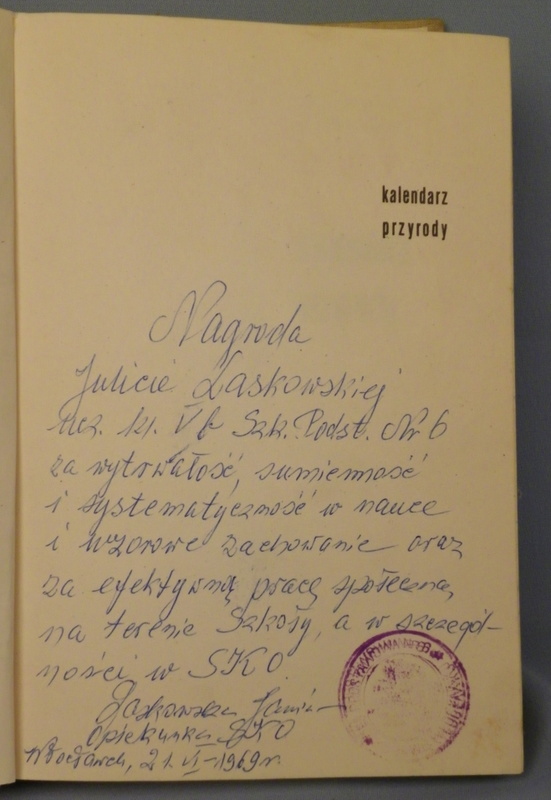 kalendarz
przyrody
Nagroda
Julicie Laskowskiej
ucz. kl. Vb Szk. Podst. Nr 6
za wytrwałość, sumienność
i systematyczność w nauce
i wzorowe zachowanie oraz
za efektywną pracę społeczną,
na terenie Szkoły, a w szczegól-
ności w SKO.
Laskowska
Opiekunka SKO
Włocławek, 21.VI-1969r.